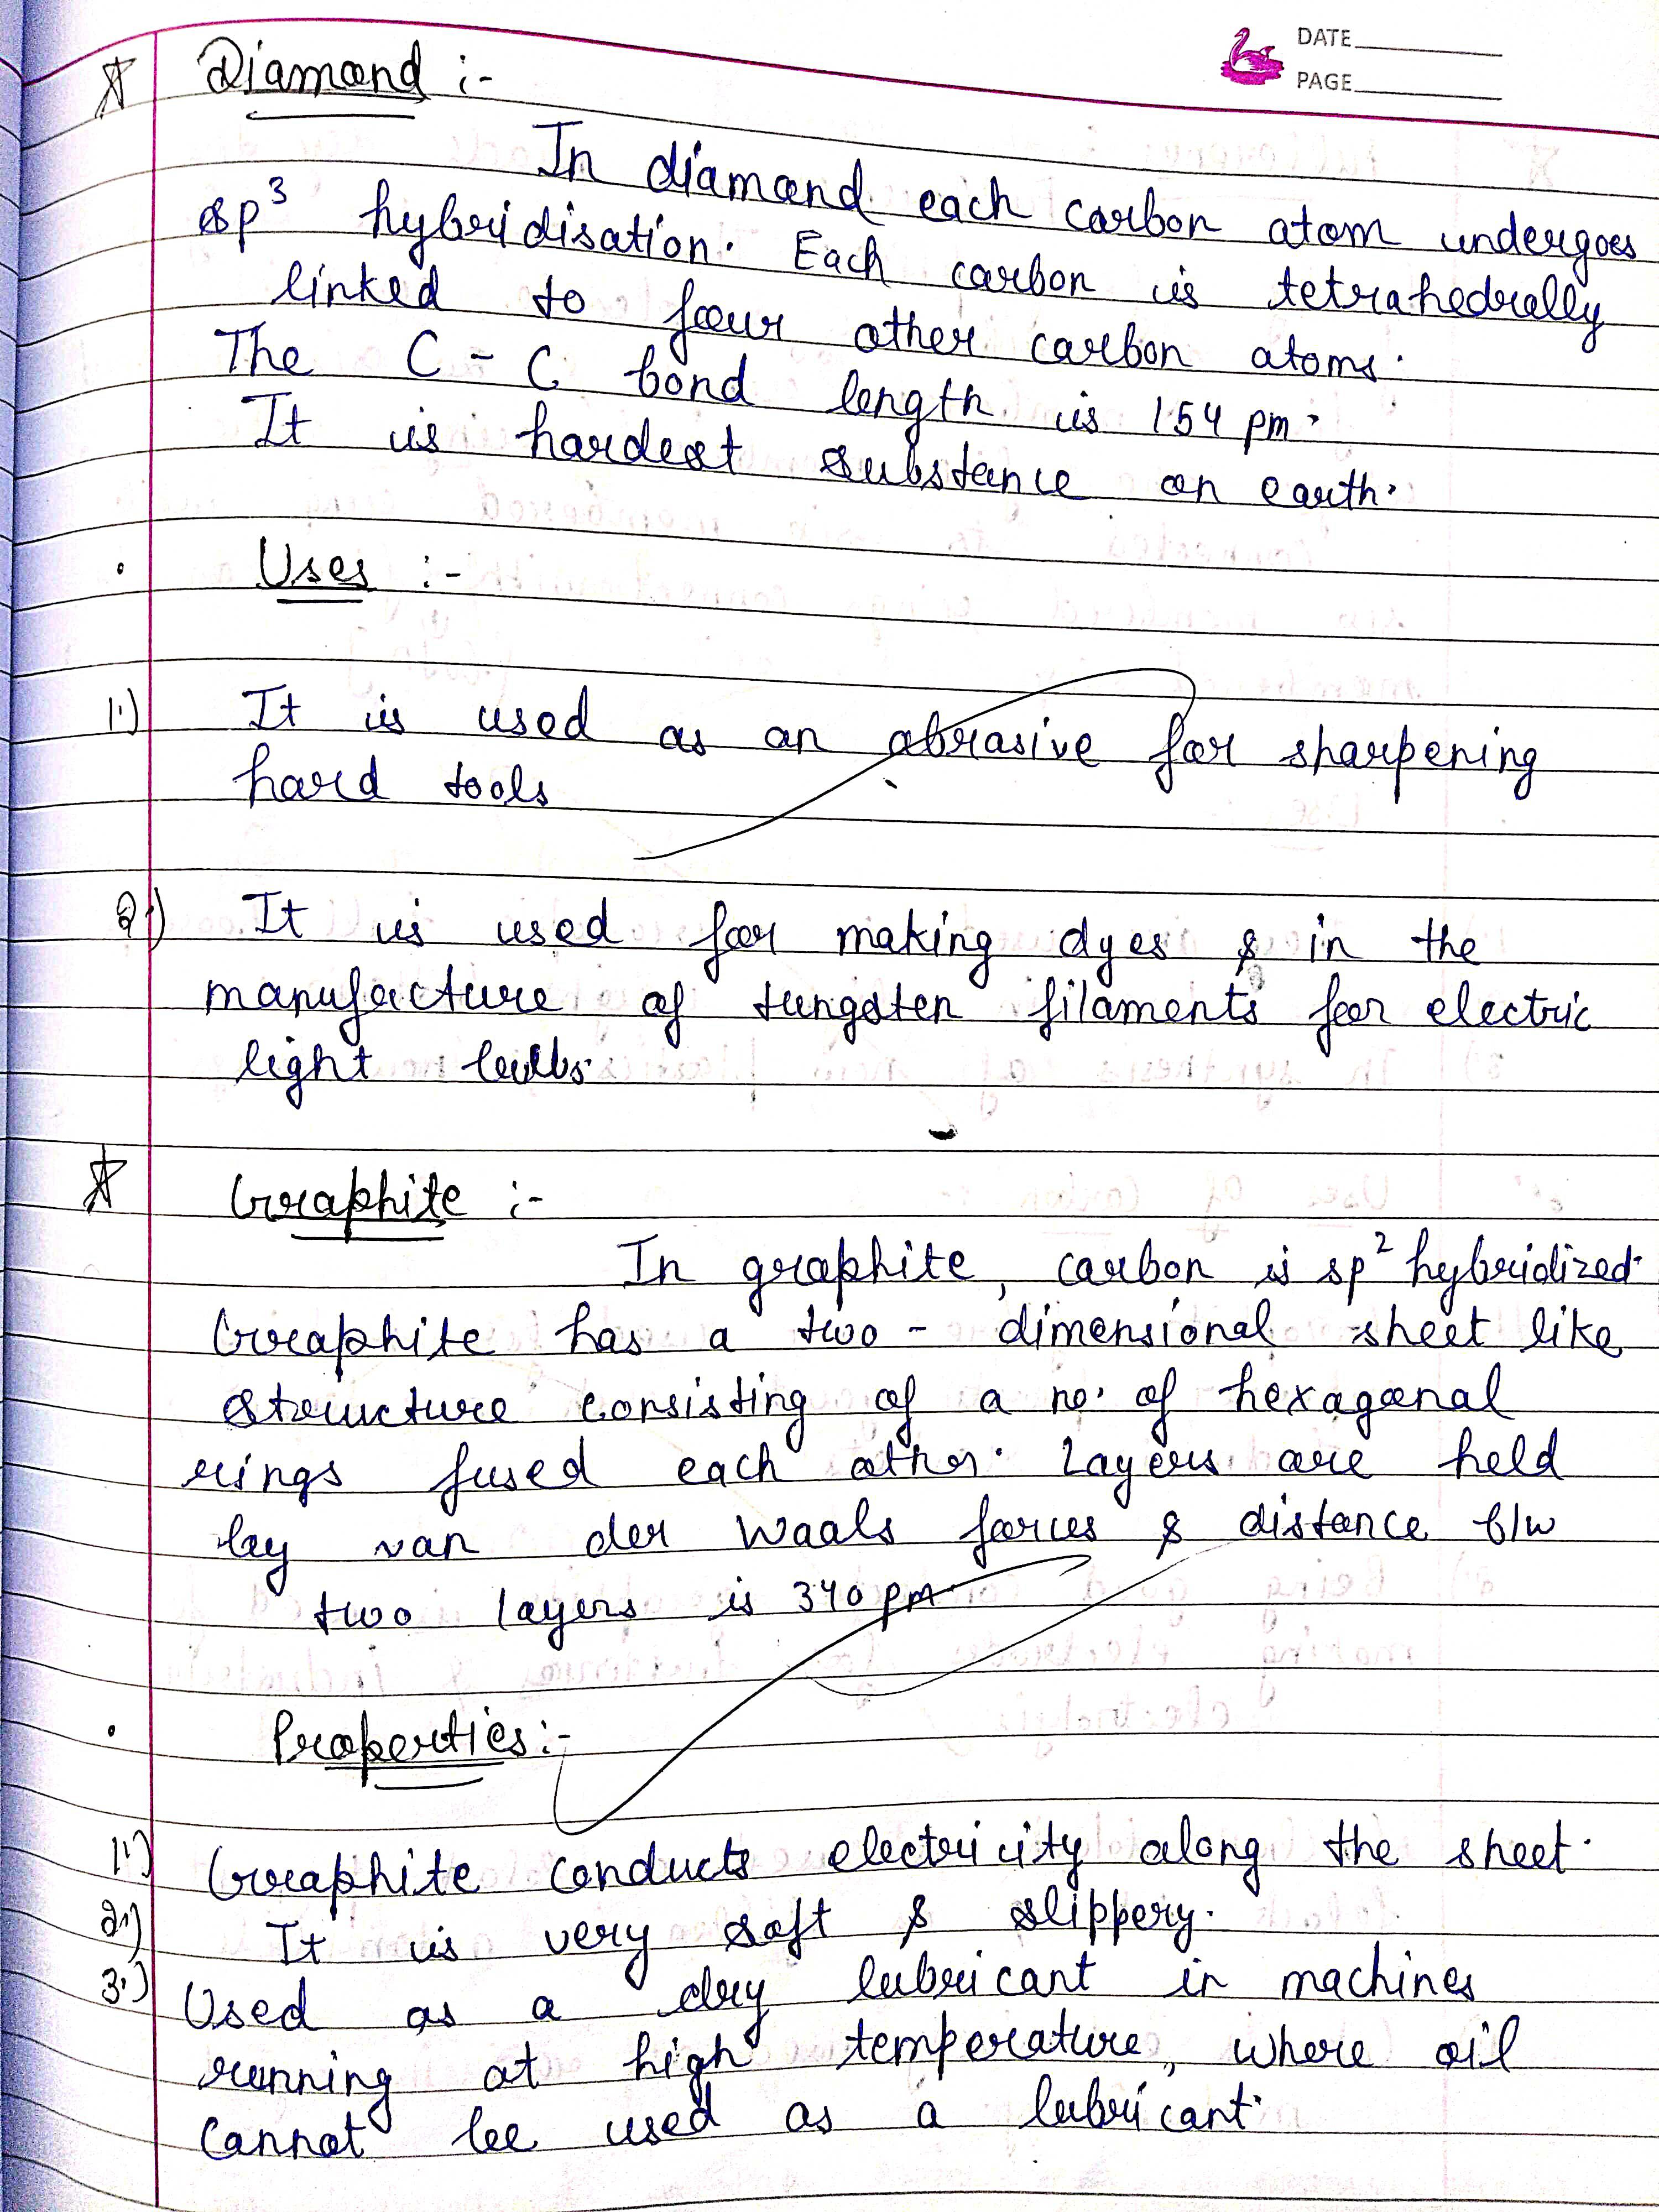 DATE
PAGE
☆ Diamond :-
In diamond each carbon atom undergoes
sp³ hybridisation. Each carbon is tetrahedrally
linked to four other carbon atoms.
The C - C bond length is 154 pm.
It is hardest substance on earth.
• Uses :-
1.) It is used as an abrasive for sharpening
hard tools
2.) It is used for making dyes & in the
manufacture of tungsten filaments for electric
light bulbs.
☆ Graphite :-
In graphite, carbon is sp² hybridized.
Graphite has a two - dimensional sheet like
structure consisting of a no. of hexagonal
rings fused each other. Layers are held
by van der Waals forces & distance b/w
two layers is 340 pm.
• Properties :-
1.) Graphite conducts electricity along the sheet.
2.) It is very soft & slippery.
3.) Used as a dry lubricant in machines
running at high temperature, where oil
cannot be used as a lubricant.